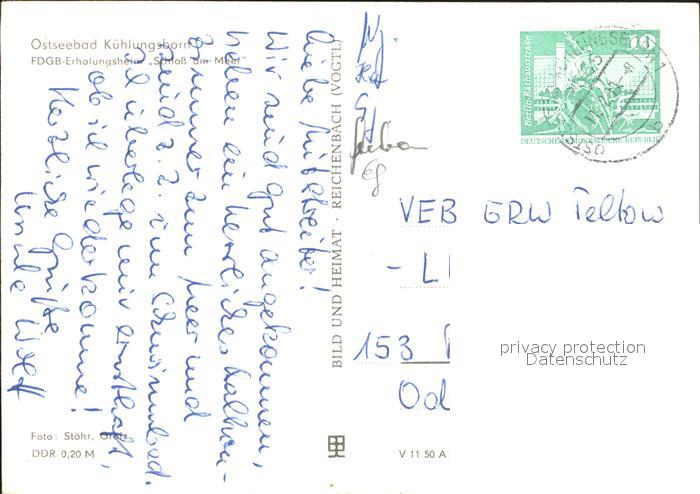 Ostseebad Kühlungsborn
FDGB-Erholungsheim „Schloß am Meer"
Liebe Mitstreiter!
Wir sind gut angekommen,
haben ein herrliches Balkon-
zimmer zum Meer und
sind z. Z. im Schwimmbad.
Ich überlege mir ernsthaft,
ob ich wiederkomme!
Herzliche Grüße
Ursula Wolff
Foto: Stöhr, Greiz
DDR 0,20 M
BILD UND HEIMAT · REICHENBACH (VOGTL)
V 11 50 A
10
Berlin-Rathausstraße
DEUTSCHE DEMOKRATISCHE REPUBLIK
VEB GRW Teltow
- L
153
Od
privacy protection
Datenschutz